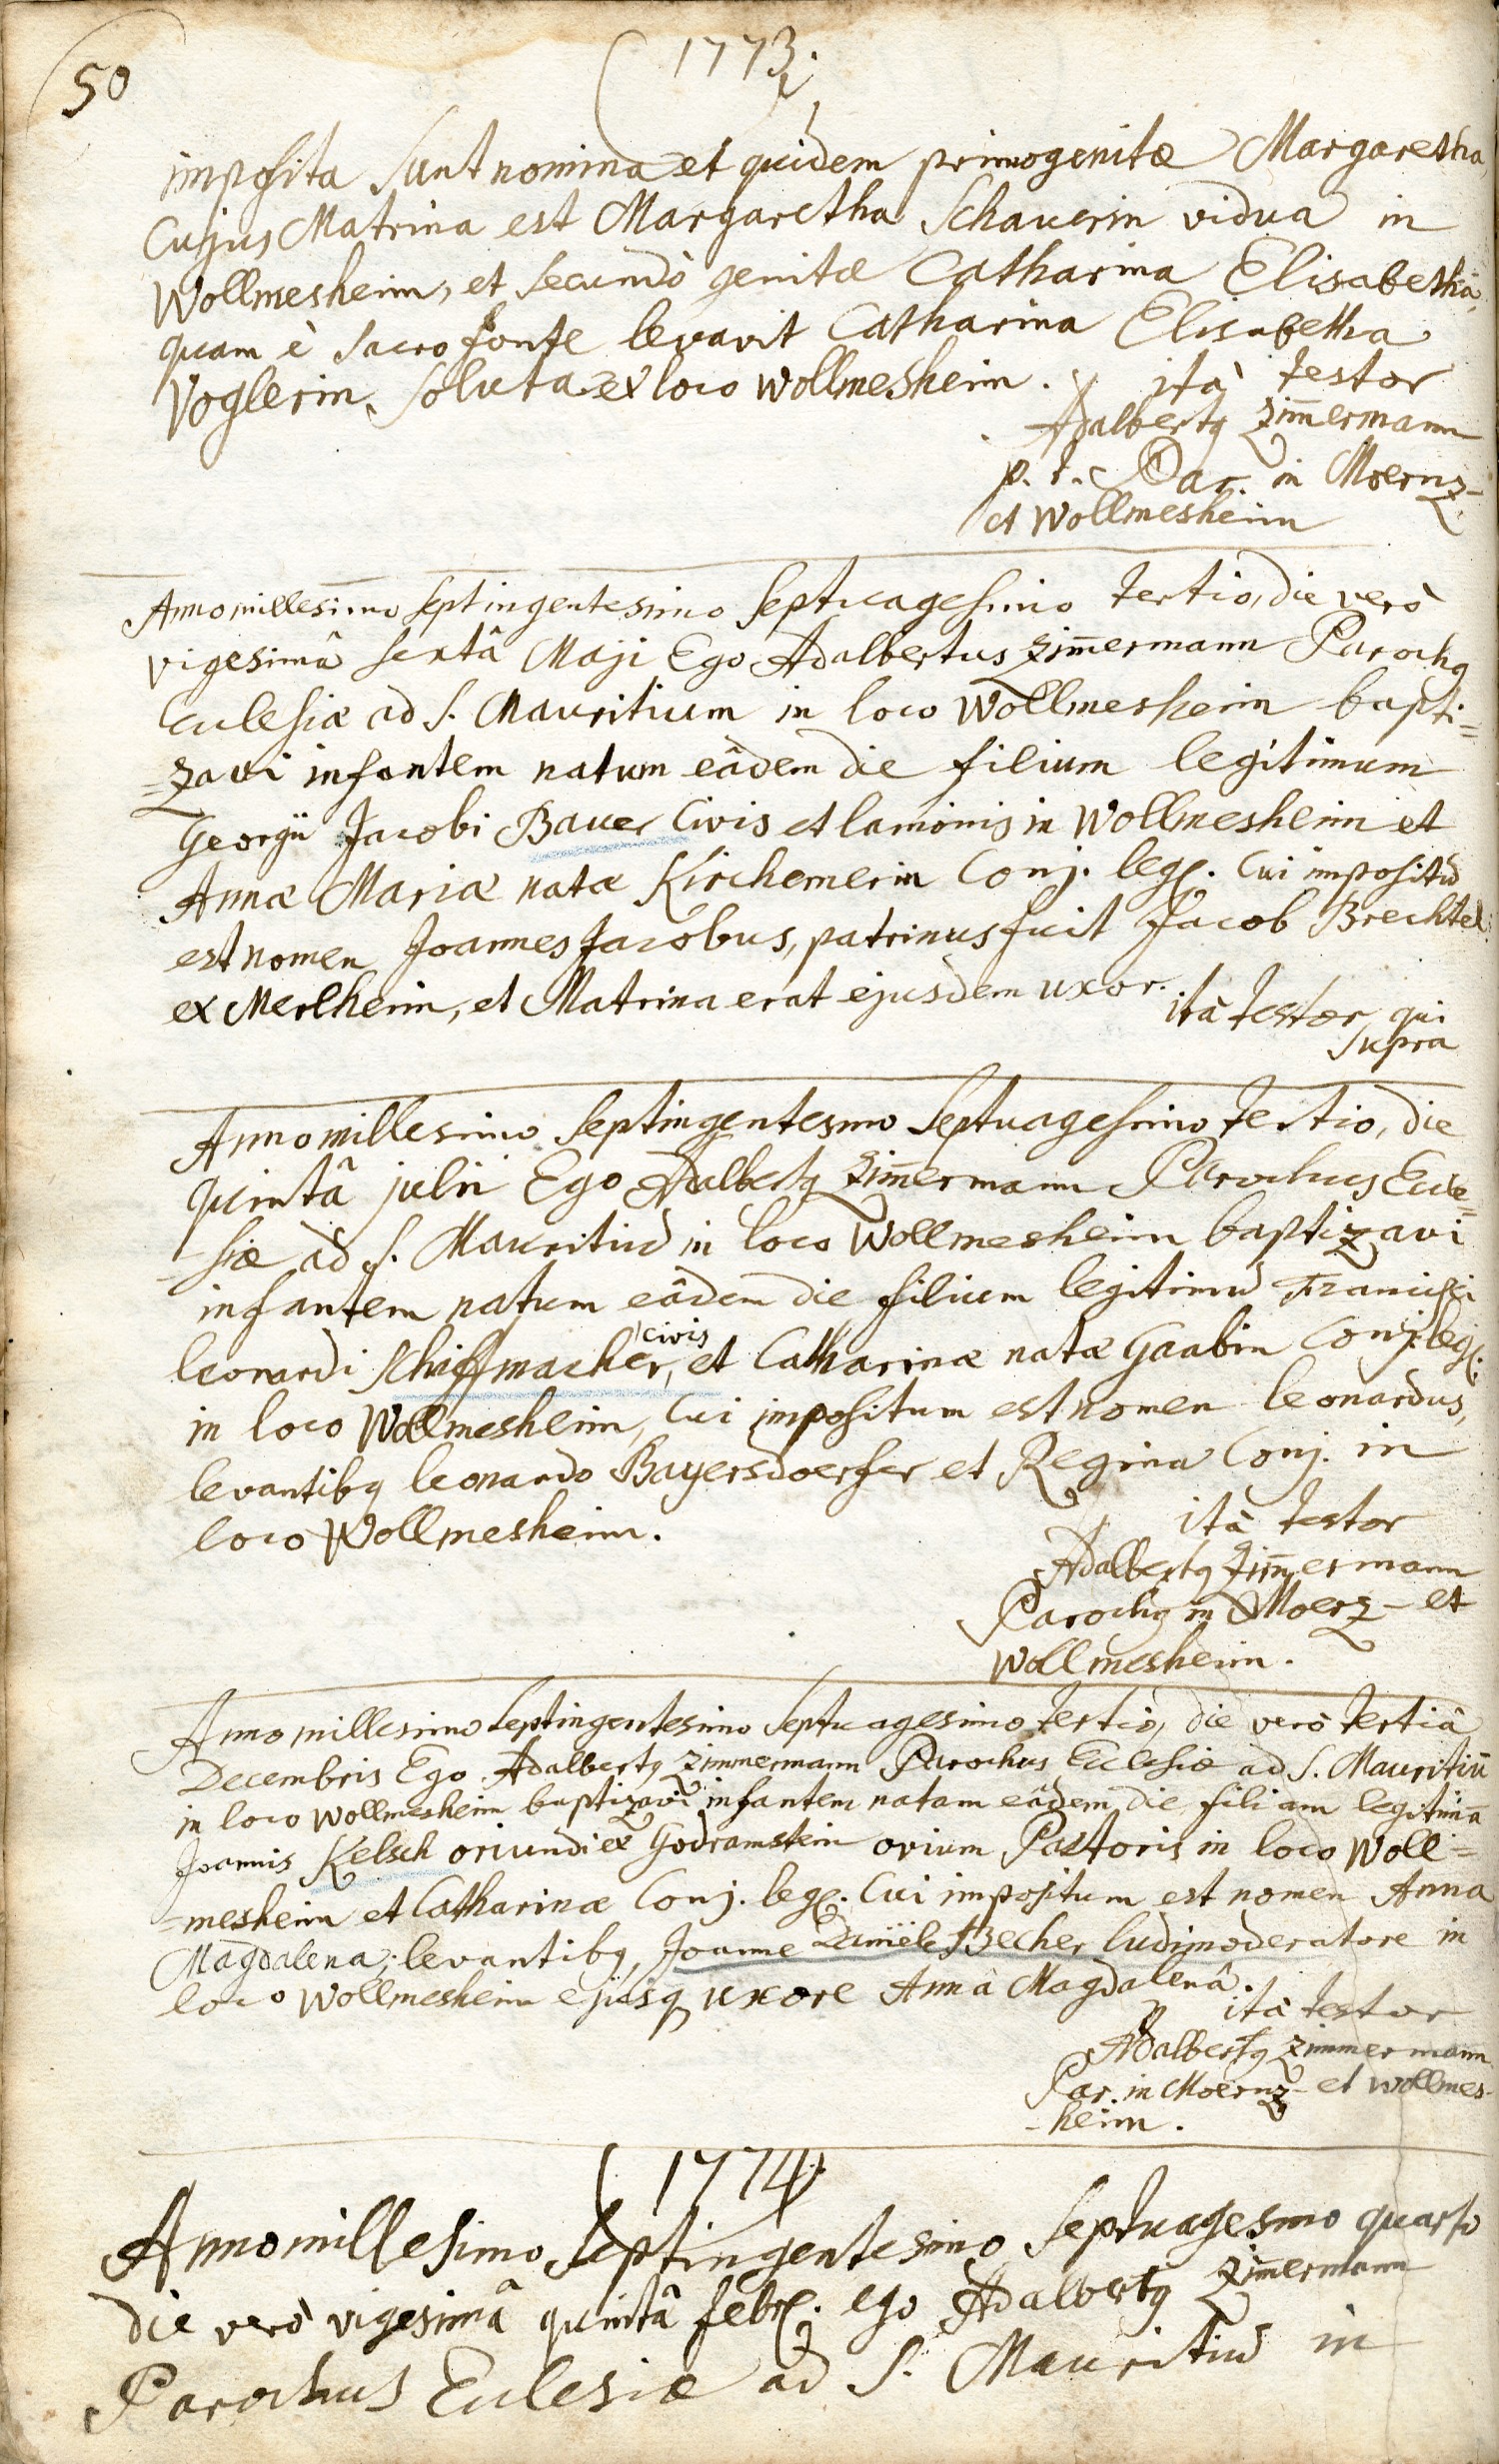 50
1773.
imposita sunt nomina et quidem primogenitæ Margaretha,
Cujus Matrina est Margaretha Schauerin vidua in
Wollmesheim, et secundò genitæ Catharina Elisabetha,
quam è sacro fonte levavit Catharina Elisabetha
Voglerin, soluta ex loco Wollmesheim. ità testor
Adalbertq Zim̄ermann
p. t. Par. in Moernz-
et Wollmesheim
Anno millesimo septingentesimo septuagesimo tertio, die verò
vigesimâ sextâ Maji Ego Adalbertus Zim̄ermann Parochq
Ecclesiæ ad S. Mauritium in loco Wollmesheim bapti=
=zavi infantem natum eâdem die filium legitimum
Georgii Jacobi Bauer Civis et lanionis in Wollmesheim et
Annæ Mariæ natæ Kirchemerin Conj. leg. Cui impositū
est nomen Joannes Jacobus, patrinus fuit Jacob Brechtel
ex Merlheim, et Matrina erat ejusdem uxor.
ità testor, qui
supra
Anno millesimo septingentesimo septuagesimo tertio, die
quintâ julii Ego Adalbertq Zim̄ermann Parochus Eccle=
=siæ ad S. Mauritiū in loco Wollmesheim baptizavi
infantem natum eâdem die filium legitimū Francisci
leonardi Schiffmacher, civis et Catharinæ natæ Gaabin Conj. leg.
in loco Wollmesheim, Cui impositum est nomen leonardus,
levantibq leonardo Bayersdoerfer et Regina Conj. in
loco Wollmesheim.
ità testor
Adalbertq Zim̄ermann
Parochq in Moerz- et
Wollmesheim.
Anno millesimo septingentesimo septuagesimo tertio, die verò tertiâ
Decembris Ego Adalbertq Zimmermann Parochus Ecclesiæ ad S. Mauritiū
in loco Wollmesheim baptizavi infantem natam eâdem die filiam legitimā
Joannis Kelsch oriundi ex Godramstein ovium Pastoris in loco Woll=
=mesheim et Catharinæ Conj. leg. Cui impositum est nomen Anna
Magdalena; levantibq, Joanne Daniële Becher ludimoderatore in
loco Wollmesheim ejusq uxore Annâ Magdalenâ.
ità testor
Adalbertq Zimmermann
Par. in Moernz- et Wollmes-
-heim.
1774
Anno millesimo septingentesimo septuagesimo quarto
die verò vigesimâ quintâ febr. ego Adalbertq Zim̄ermann
Parochus Ecclesiæ ad S. Mauritiū in